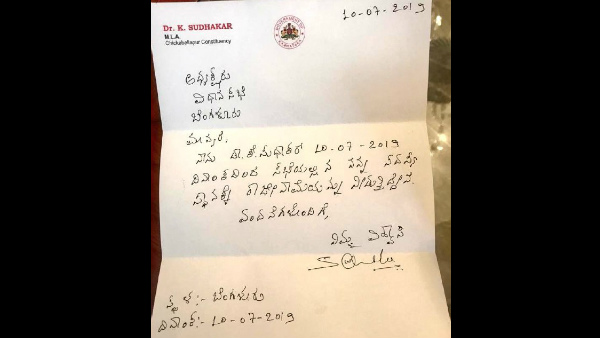 Dr. K. SUDHAKAR
M.L.A.
Chickaballapur Constituency
GOVERNMENT OF KARNATAKA
10-07-2019
ಅಧ್ಯಕ್ಷರು
ವಿಧಾನ ಸಭೆ
ಬೆಂಗಳೂರು
ಮಾನ್ಯರೆ,
ನಾನು ಡಾ. ಕೆ. ಸುಧಾಕರ್ 10-07-2019
ದಿನಾಂಕದಿಂದ ಸಭೆಯಲ್ಲಿನ ನನ್ನ ಸದಸ್ಯ
ಸ್ಥಾನಕ್ಕೆ ರಾಜೀನಾಮೆಯನ್ನು ನೀಡುತ್ತಿದ್ದೇನೆ.
ವಂದನೆಗಳೊಂದಿಗೆ,
ನಿಮ್ಮ ವಿಶ್ವಾಸಿ
ಸ್ಥಳ:- ಬೆಂಗಳೂರು
ದಿನಾಂಕ:- 10-07-2019